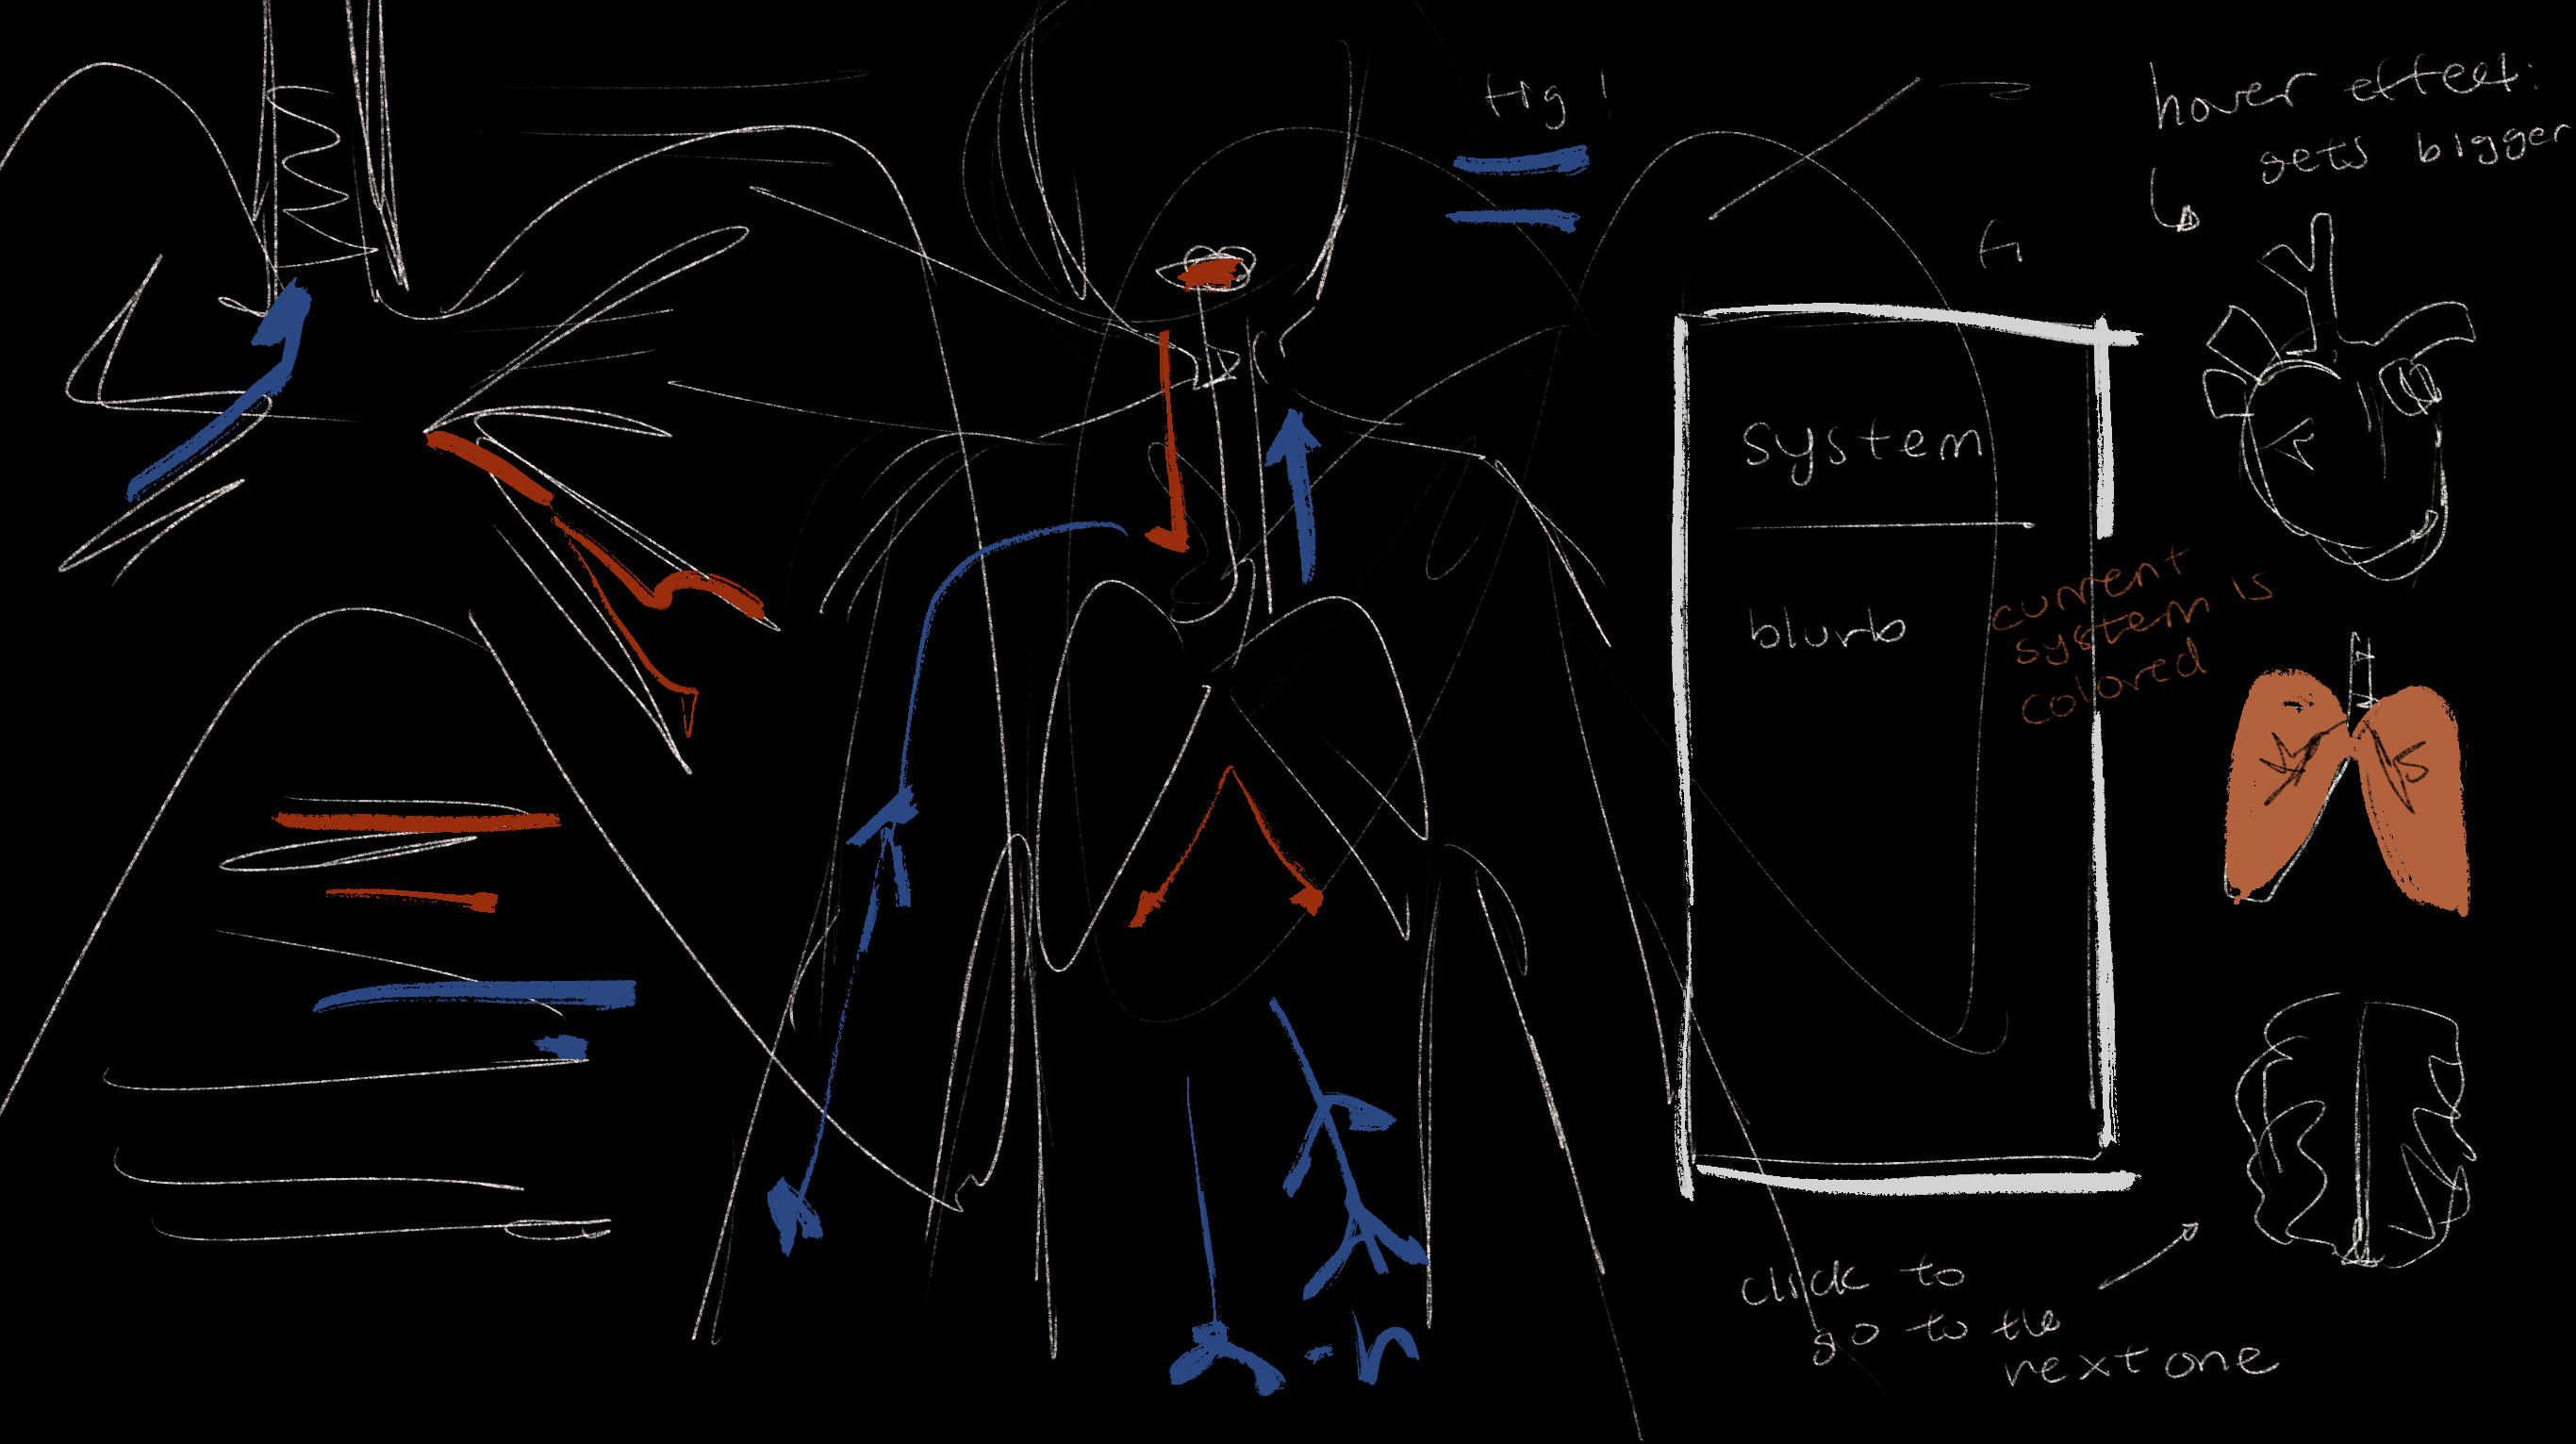 fig 1
hover effect:
gets bigger
system
blurb
current
system is
colored
click to
go to the
next one